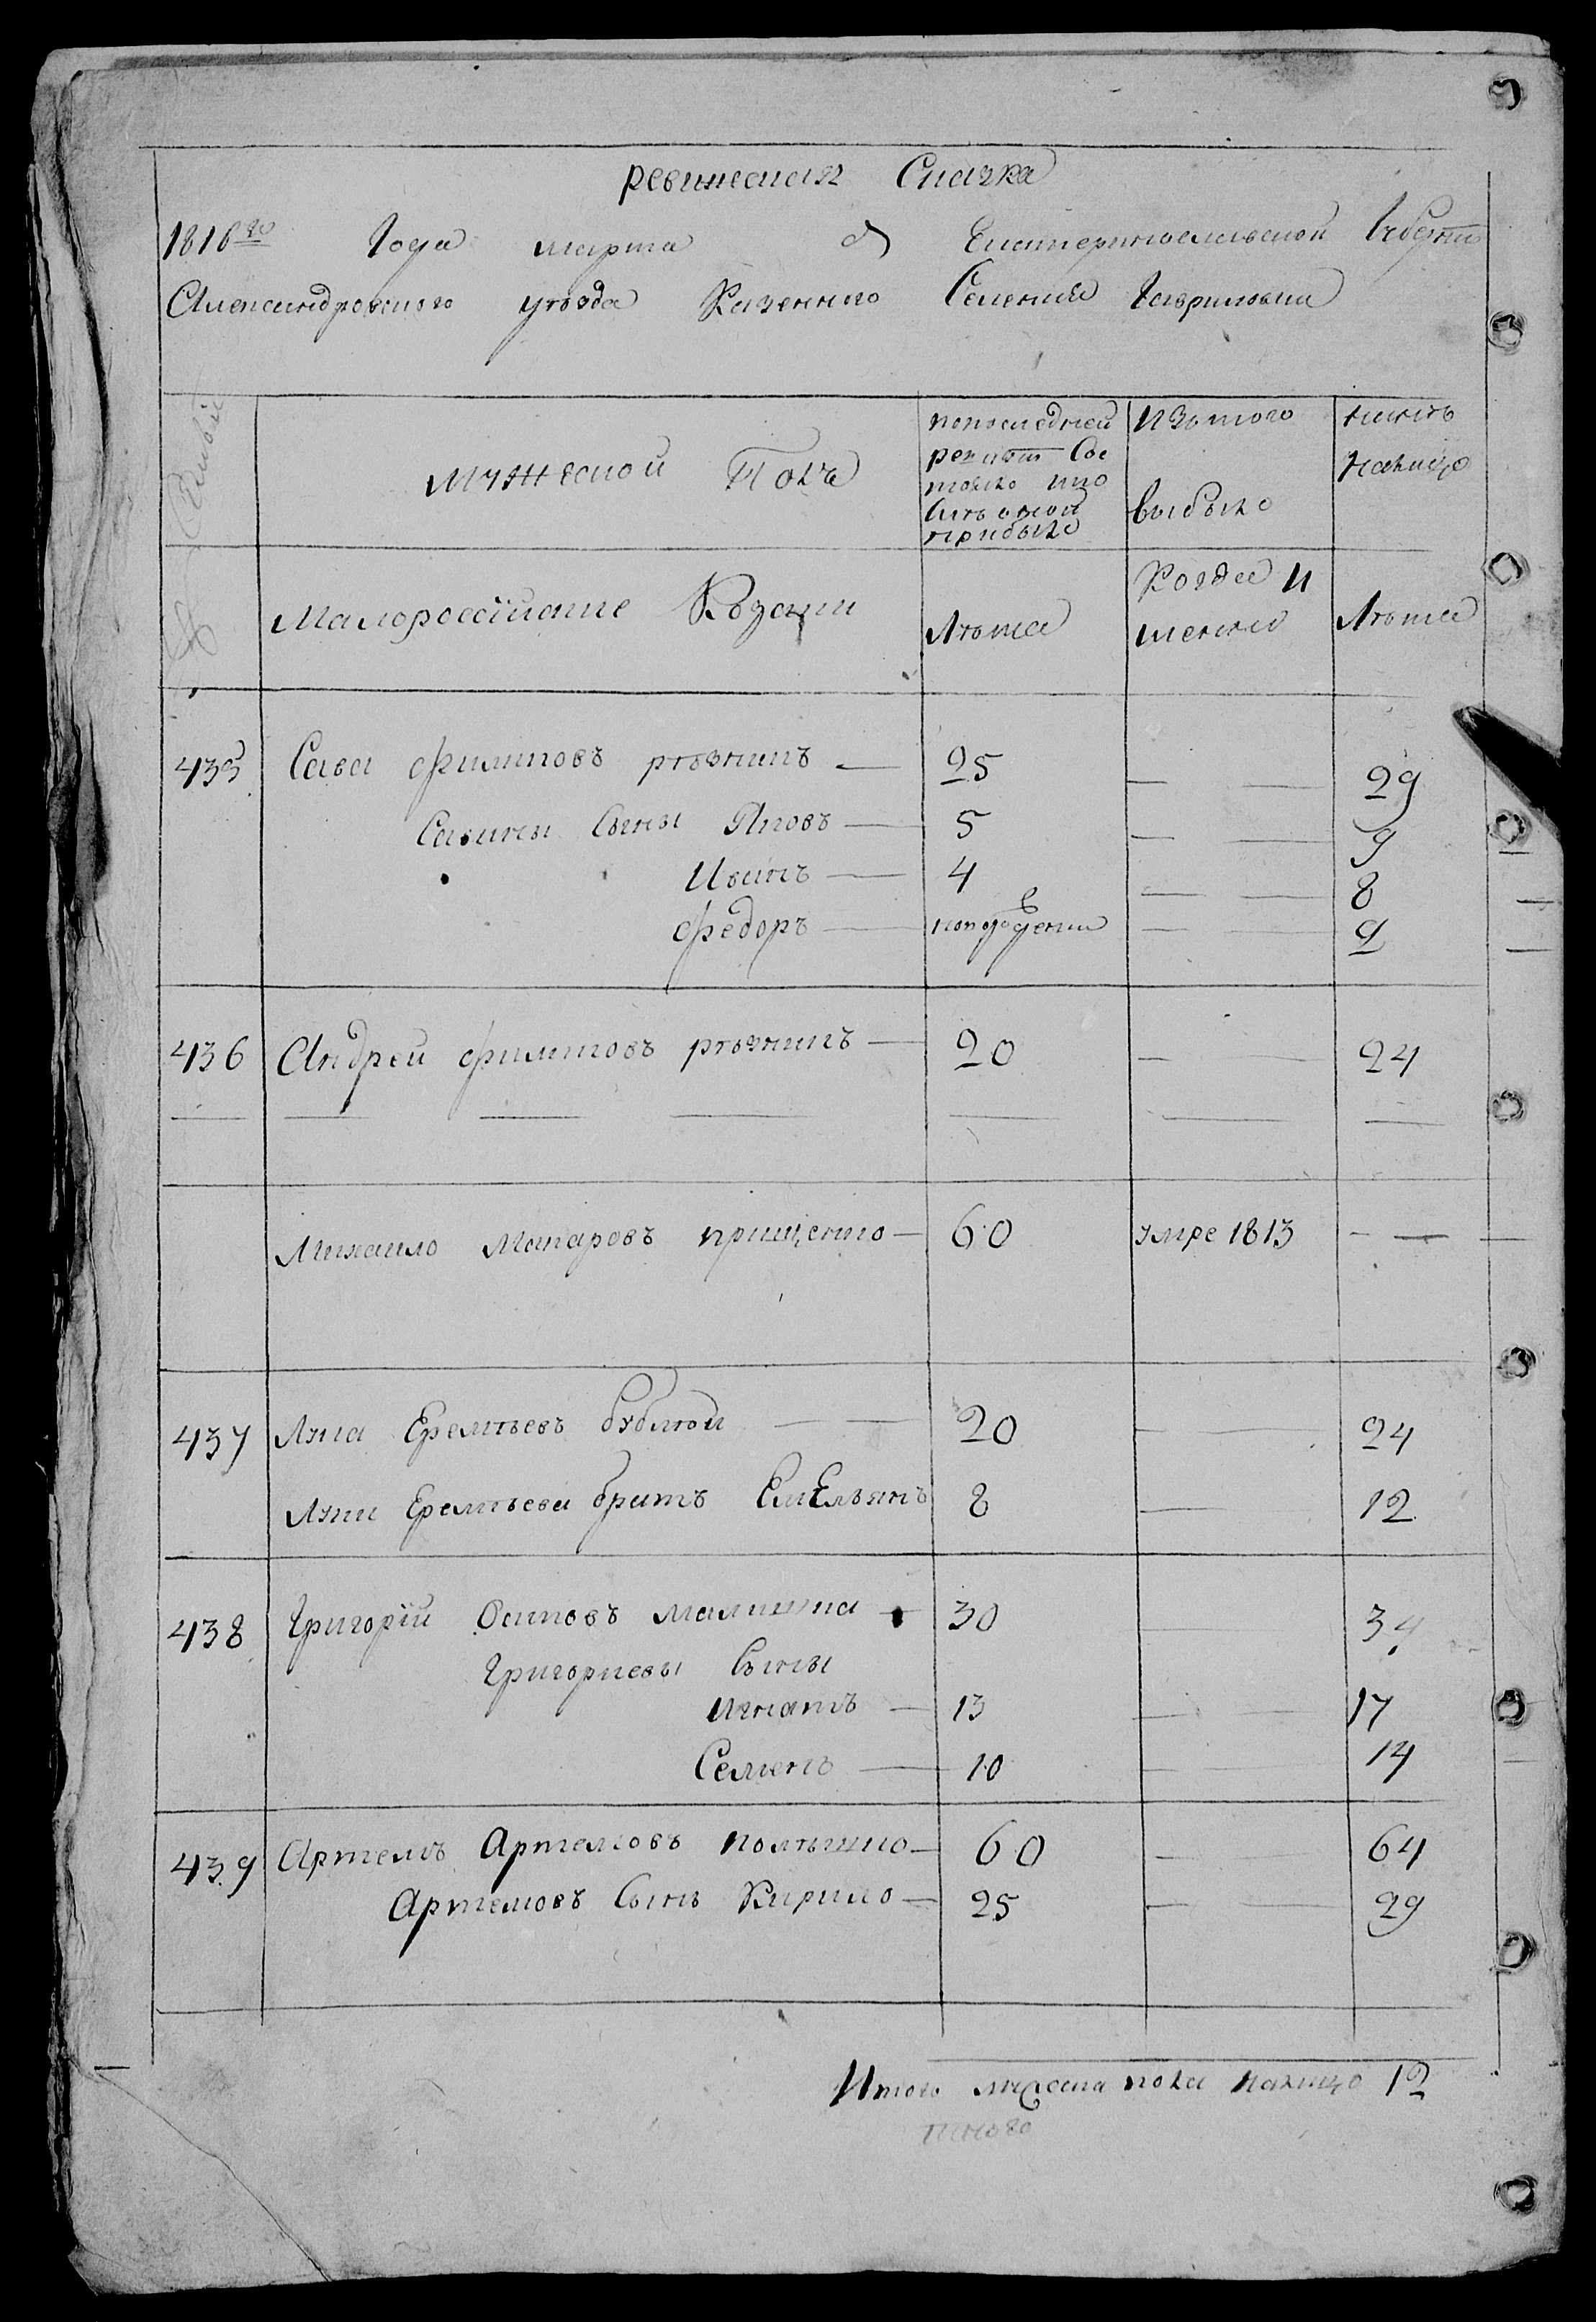 ревижская Сказка
1816го Года марта д Екатеринославской Губерни
Александровского уѣзда Казенного Селения Гавриловки
Семьи
Мужеской Полъ
попоследней ревизіи Состояло и после оной прибыло
Изътого выбыло
нынѣ налицо
Малороссійские Козаки
Лѣта
Когда и именно
Лѣта
435 Сава филиповъ рѣзникъ — 25 — — 29
Савины Сыны Яковъ — 5 — — 9
Иванъ — 4 — — 8
федоръ — новорожденни — — 2
436 Андрей филиповъ рѣзникъ — 20 — — 24
Михайло Макаровъ прищенко — 60 умре 1813 — —
437 Лука Еремѣевъ бублікъ — — 20 — — 24
Луки Еремѣева братъ Емельянъ 8 — — 12
438 Григорій Осиповъ малишка — 30 — 34
Григориевы Сыны
Игнатъ — 13 — — 17
Семенъ — 10 — 14
439 Артемъ Артемовъ — 60 — — 64
Артемовъ Сынъ Кирило — 25 — — 29
Итого мужеска пола налицо 12